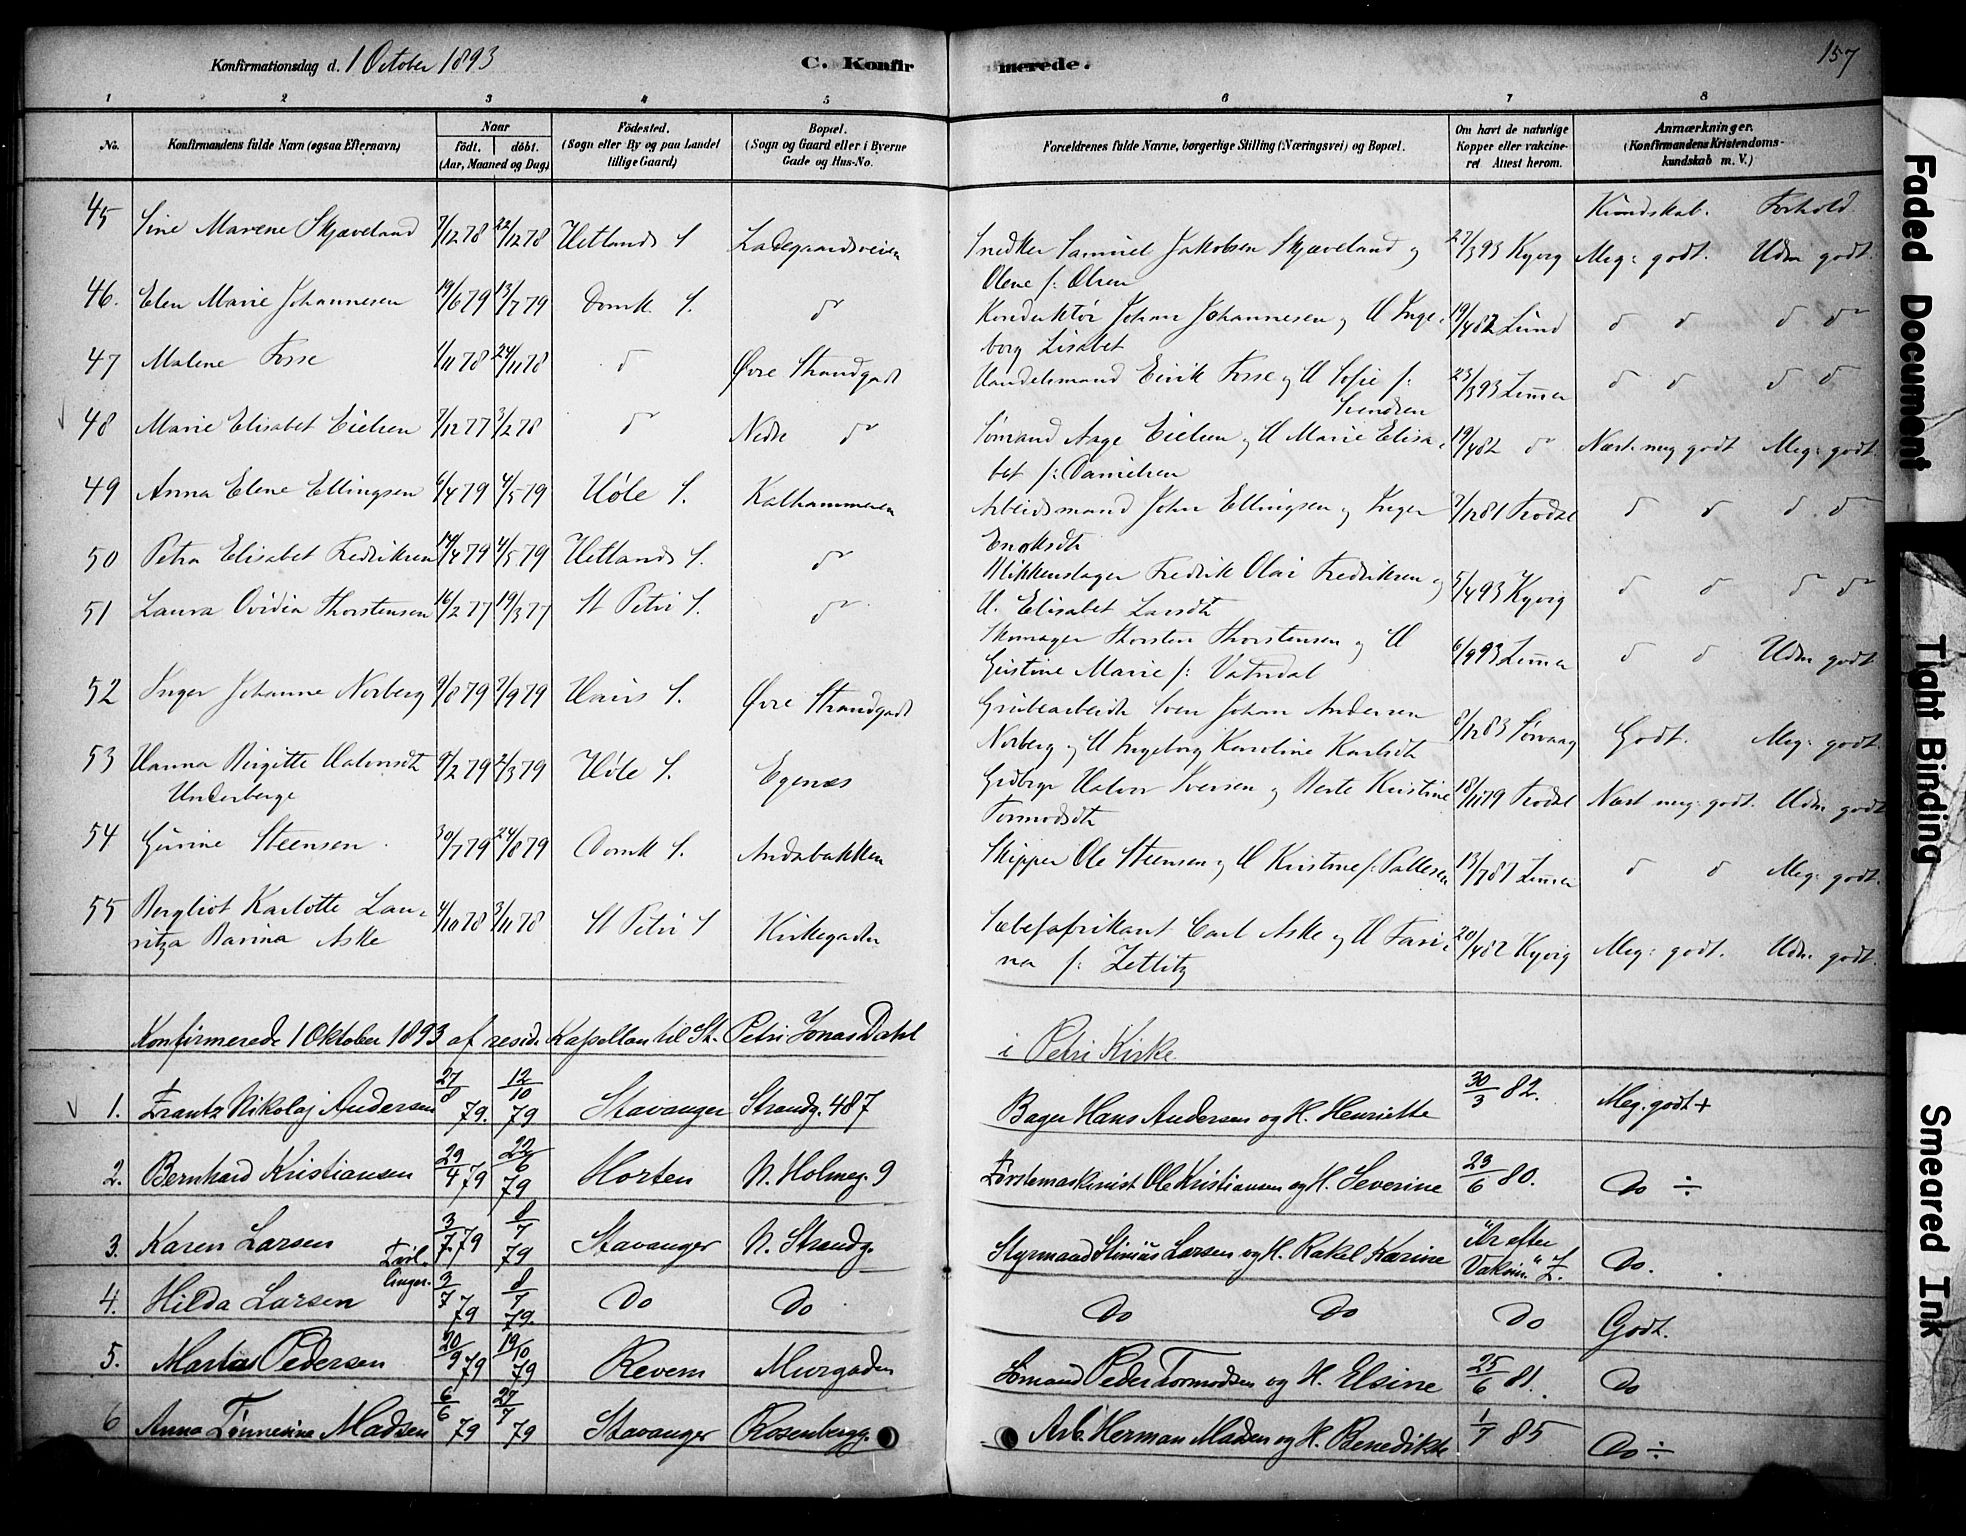 Konfirmationsdag d. 1 October 1893
C. Konfirmerede.
157
1 2 3 4 5 6 7 8
No.
Konfirmandens fulde Navn (ogsaa Efternavn)
Naar
født. døbt.
(Aar, Maaned og Dag)
Fødested.
(Sogn eller By og paa Landet
tillige Gaard)
Bopæl.
(Sogn og Gaard eller i Byerne
Gade og Hus-No.
Forældrenes fulde Navne, borgerlige Stilling (Næringsvei) og Bopæl.
Om havt de naturlige
Kopper eller vakcine-
ret Attest herom.
Anmærkninger.
(Konfirmandens Kristendoms-
kundskab m. V.)
Kundskab. Forhold
45 Sine Marene Skjæveland 7/12 78 22/12 78 Hetlands S Ladegaardsveien Snedker Samuel Jakobsen Skjæveland og 27/3 93 Kyvig Meg: godt. Udm godt.
Olene f: Olsen
46. Elen Marie Johannesen 19/6 79 13/7 79 Domk. S. do Konduktør Johan Johannesen og H Inge- 19/4 82 Lund do do do do
borg Lisabet
47 Malene Fosse 1/11 78 24/11 78 do Øvre Strandgade Handelsmand Eirik Fosse og H Sofie f: 23/3 93 Zimmer do do do do
Svendsen
48 Marie Elisabet Eielsen 7/12 77 3/2 78 do Nedre do Sømand Aage Eielsen og H Marie Elisa- 19/4 82 do Næst meg godt Meg: godt
bet f: Danielsen
49 Anna Elene Ellingsen 6/4 79 4/5 79 Høle S. Kalhammeren Arbeidsmand John Ellingsen og Inger 2/12 81 Frodal do do do do
Enoksdtr
50 Petra Elisabet Fredriksen 14/4 79 4/5 79 Hetlands S. do Blikkenslager Fredrik Olai Fredriksen og 5/4 93 Kyvig do do do do
H. Elisabet Larsdtr
51 Laura Ovidia Thorstensen 16/2 77 19/3 77 St Petri S. do Skomager Thorsten Thorstensen og H 6/9 93 Zimmer do do Udm godt
Gustine Marie f: Vatndal
52 Inger Johanne Norberg 9/8 79 7/9 79 Haus S. Øvre Strandgade Grubearbeider Sven Johan Andersen 8/12 83 Sørvaag Godt. Meg: godt
Norberg og H Ingeborg Karoline Karlsdtr
53 Hanna Birgitte Halvorsdtr 9/2 79 2/3 79 Høle S. Egenæs Grdbrgr Halvor Iversen og Berte Kristine 18/11 79 Frodal Næst meg: godt. Udm godt
Underberge Tormodsdtr
54 Gurine Steensen 30/7 79 24/8 79 Domk S. Andabakken Skipper Ole Steensen og H Kirstine f: Pallesen 13/7 87 Zimmer do do Meg: godt.
55 Bergliot Karlotte Lau- 4/10 78 3/11 78 St Petri S Kirkegaden Sæbefabrikant Carl Aske og H Tari- 20/4 82 Kyvig Meg: godt. Udm godt.
ritza Barina Aske na f: Zetlitz
Konfirmerede 1 Oktober 1893 af resid. Kapellan til St. Petri Jonas Dahl i Petri Kirke
1. Frantz Nikolaj Andersen 27/8 79. 12/10 79 Stavanger Strandg. 487 Bager Hans Andersen og H. Henriette 30/3 82. Meg. godt +
2. Bernhard Kristiansen 29/4 79 22/6 79 Horten N. Holmeg. 9 Førstemaskinist Ole Kristiansen og H. Severine 23/6 80. Do ÷
3. Karen Larsen 3/7 79 8/7 79 Stavanger N. Strandg. Styrmand Stinius Larsen og H. Rakel Karine "Ar efter Do.
Tvil- Vakcin." Z.
linger.
4. Hilda Larsen 3/7 79 8/7 79. Do Do Do Do Do Godt.
5. Martas Pedersen 20/9 79 19/10 79 Revem Murgaden Sømand Peder Tormodsen og H. Elsine 25/6 81. Do
6 Anna Tønnesine Madsen 6/6 79 27/7 79 Stavanger Rosenbergg. Arb. Herman Madsen og H. Benedikte 1/7 85 Do ÷
Faded Document
Tight Binding
Smeared Ink